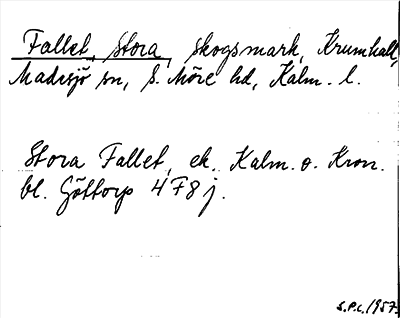 Fallet, Stora, skogsmark, Krumhall,
Madesjö sn, S. Möre hd, Kalm. l.
Stora Fallet, ek. Kalm. o. Kron.
bl. Göttorp 4 F 8 j.
S.P.C. 1957.